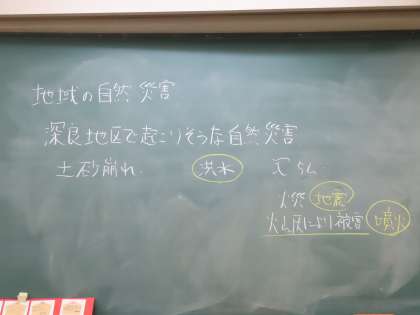 地域の自然災害
深良地区で起こりそうな自然災害
土砂崩れ 洪水 はんらん
火災 地震
火山灰により被害 噴火